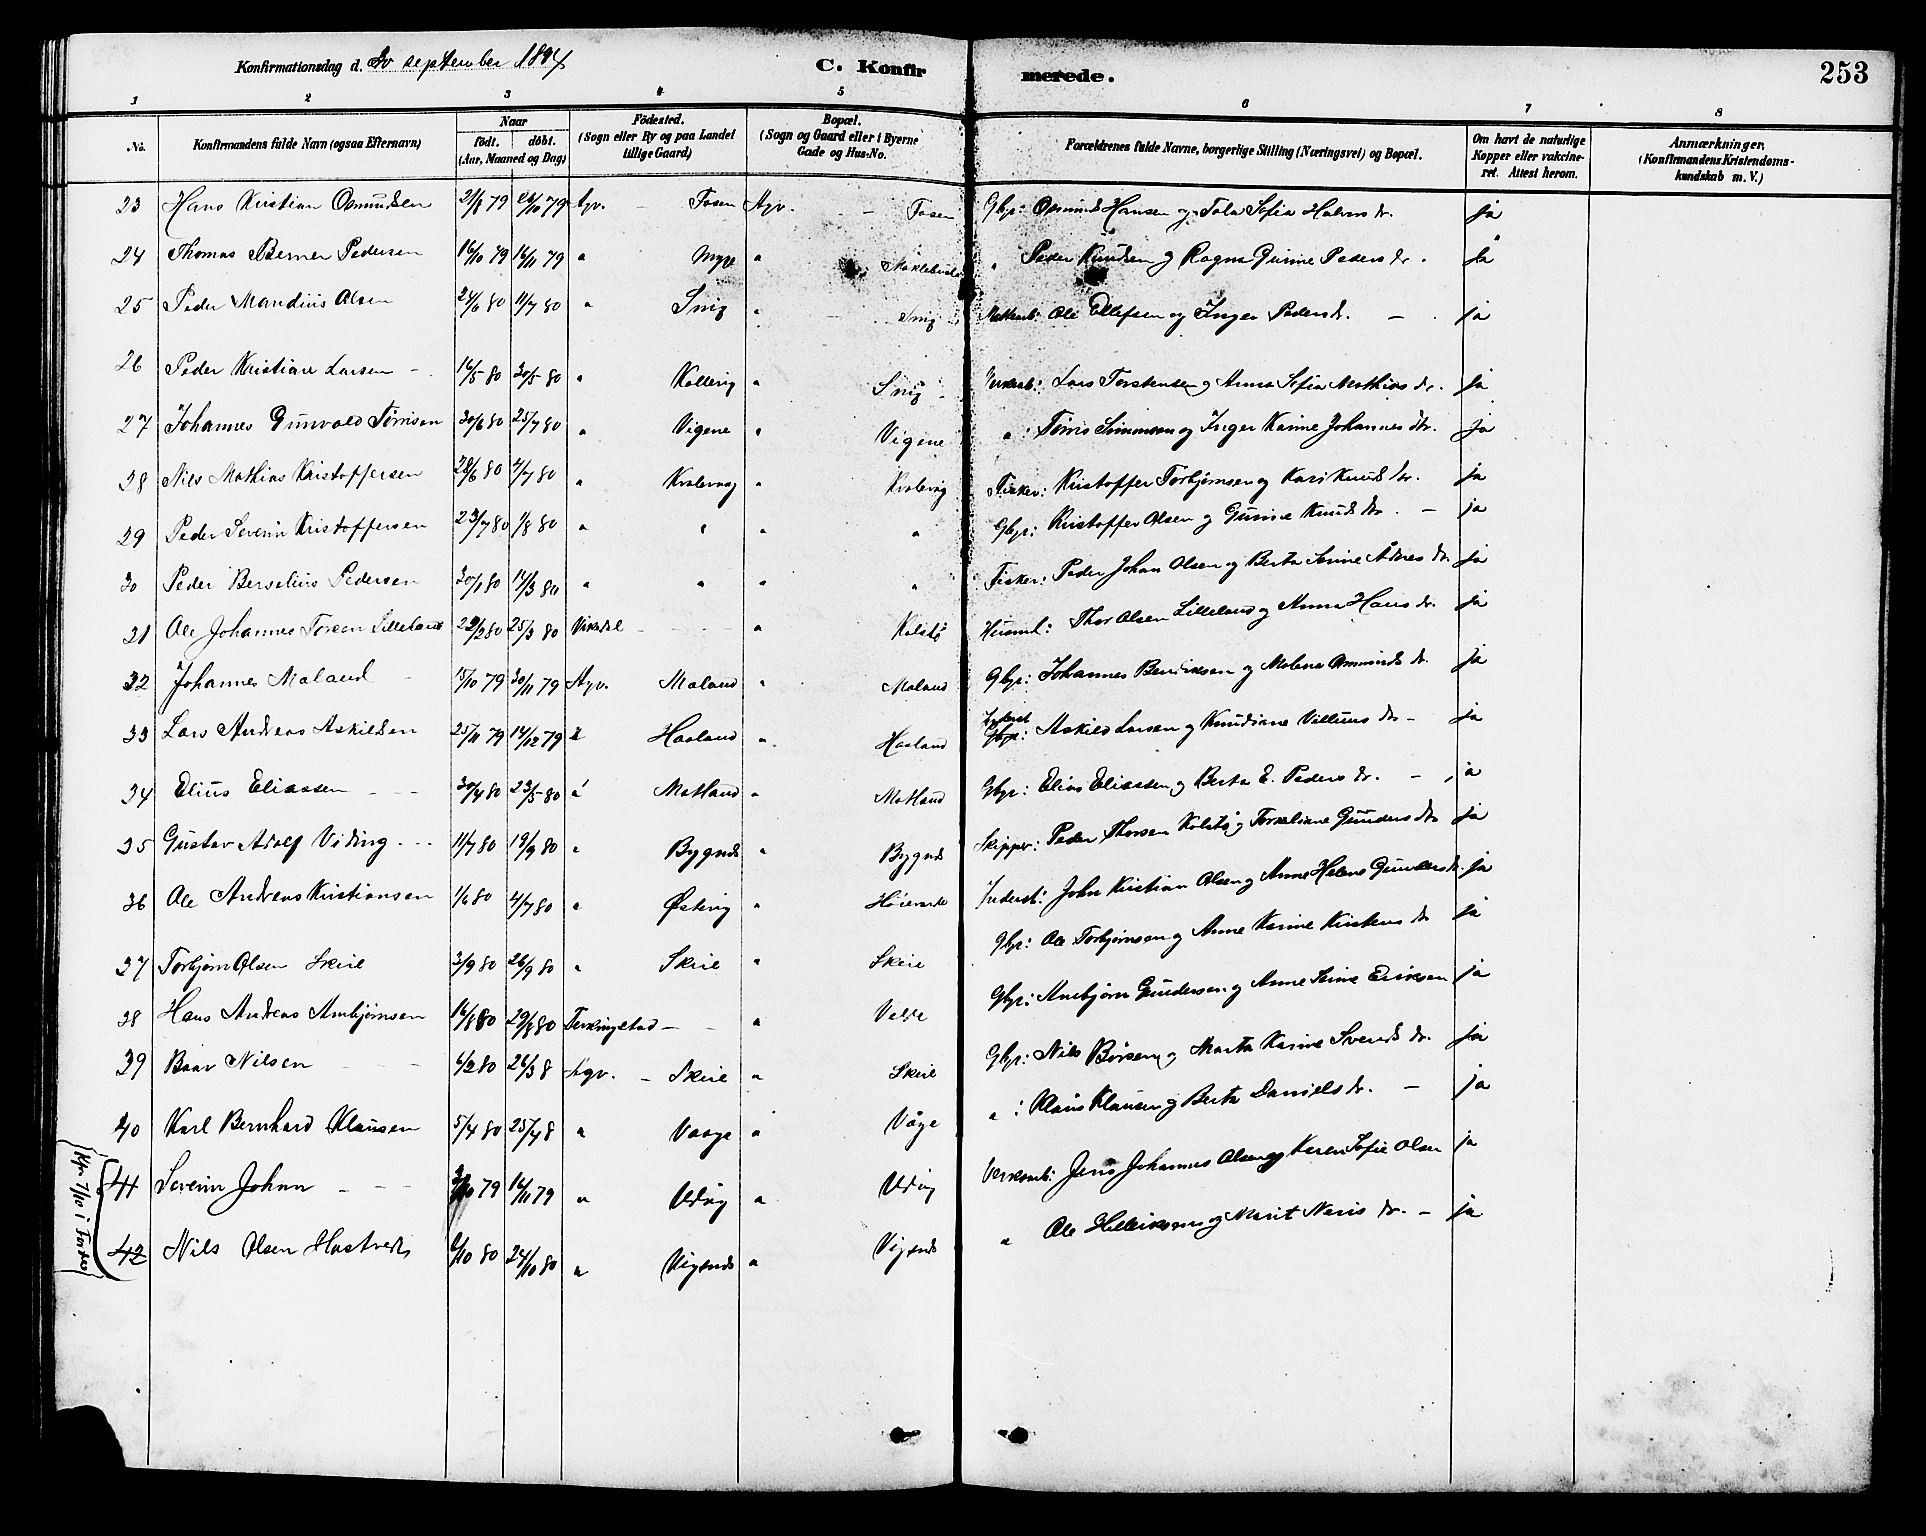 Konfirmationsdag d. 30 september 1894 C. Konfirmerede. 253
1 2 3 4 5 6 7 8
No. Konfirmandens fulde Navn (ogsaa Efternavn) Naar födt. döbt. (Aar, Maaned og Dag) Födested. (Sogn eller By og paa Landet tillige Gaard) Bopæl. (Sogn og Gaard eller i Byerne Gade og Hus-No. Forældrenes fulde Navne, borgerlige Stilling (Næringsvei) og Bopæl. Om havt de naturlige Kopper eller vakcineret. Attest herom. Anmærkninger. (Konfirmandens Kristendomskundskab m. V.)
23 Hans Kristian Osmundsen 21/8 79 26/10 79 Agv. - Fosen Agv. - Fosen Gbr: Osmund Hansen og Tala Sofia Halvors dr. ja
24 Thomas Berner Pedersen 16/10 79 16/11 79 " Myre " " Peder Knudsen og Ragna Gurine Peders dr. ja
25 Peder Mandius Olsen 24/6 80 11/7 80 " Snig " Snig Ole Ellefsen og Inger Peders dr. - ja
26 Peder Kristian Larsen - 16/5 80 30/5 80 " Kollevig " Snig Lars Torstensen og Anna Sofia Mathias dr. ja
27 Johannes Gunvald Tørrisen 30/6 80 25/7 80 " Vigene " Vigene " : Tørris Simonsen og Inger Karine Johannes dtr. ja
28 Nils Mathias Kristoffersen 28/6 80 4/7 80 " Kvalevaag " Kvalevig Fisker: Kristoffer Torbjørnsen og Kari Knuds dr. ja
29 Peder Severin Kristoffersen 23/7 80 1/8 80 " " " " Gbr: Kristoffer Olsen og Gurine Knuds dtr. - ja
30 Peder Berselius Pedersen 30/1 80 14/3 80 " " " " Fisker: Peder Johan Olsen og Berta Serine Adnes dr. ja
31 Ole Johannes Torsen Lilleland 29/2 80 25/3 80 Vikedal - " Kolstø Husm.: Thor Olsen Lilleland og Anna Hans dr. ja
32 Johannes Maland - 15/10 79 30/11 79 Agv. Maland " Maland Gbr: Johannes Bendiksen og Malena Ommunds dr. ja
33 Lars Andreas Askildsen 25/11 79 14/12 79 " Haaland " Haaland Inderst Gbr: Askild Larsen og Knudiane Villums dr - ja
34 Elius Eliassen - 30/4 80 23/5 80 " Matland " Matland Gbr: Elias Eliassen og Berta E. Peders dr. - ja
35 Gustav Adolf Viding - 11/7 80 19/9 80 " Bygnds " Bygnds Skipper: Peder Thorsen Kolstø og Torkeliane Gunders dr ja
36 Ole Andreas Kristiansen 1/6 80 4/7 80 " Østvig " Inderst: John Kristian Olsen og Anne Helene Gunders dr. ja
37 Torbjørn Olsen Skeie 3/9 80 26/9 80 " Skeie " Skeie Gbr: Ole Torbjørnsen og Anne Karine Kristens dr ja
38 Hans Andreas Ambjørnsen 16/8 80 29/8 80 Ferkingstad - " Velde Gbr: Ambjørn Gundersen og Anne Serine Eriksen ja
39 Baar Nilsen - 6/2 80 26/3 8 Agv. - Skeie " Skeie Gbr: Nils Børsen og Marta Karine Svends dr. ja
40 Karl Bernhard Klausen 5/4 80 25/4 8 " Vaage " Våge " : Klaus Klausen og Berta Daniels dr. - ja
41 Severin Johan - 3/10 79 16/11 79 " Udvig " Udvig Verksarb: Jens Johannes Olsen og Karen Sofie Olsen ja
42 Nils Olsen Hustvedt 6/10 80 24/10 80 " Vigsnds " Vigsnds " Ole Helliksen og Marit Neris dr. - ja
Kfr 7/10 i